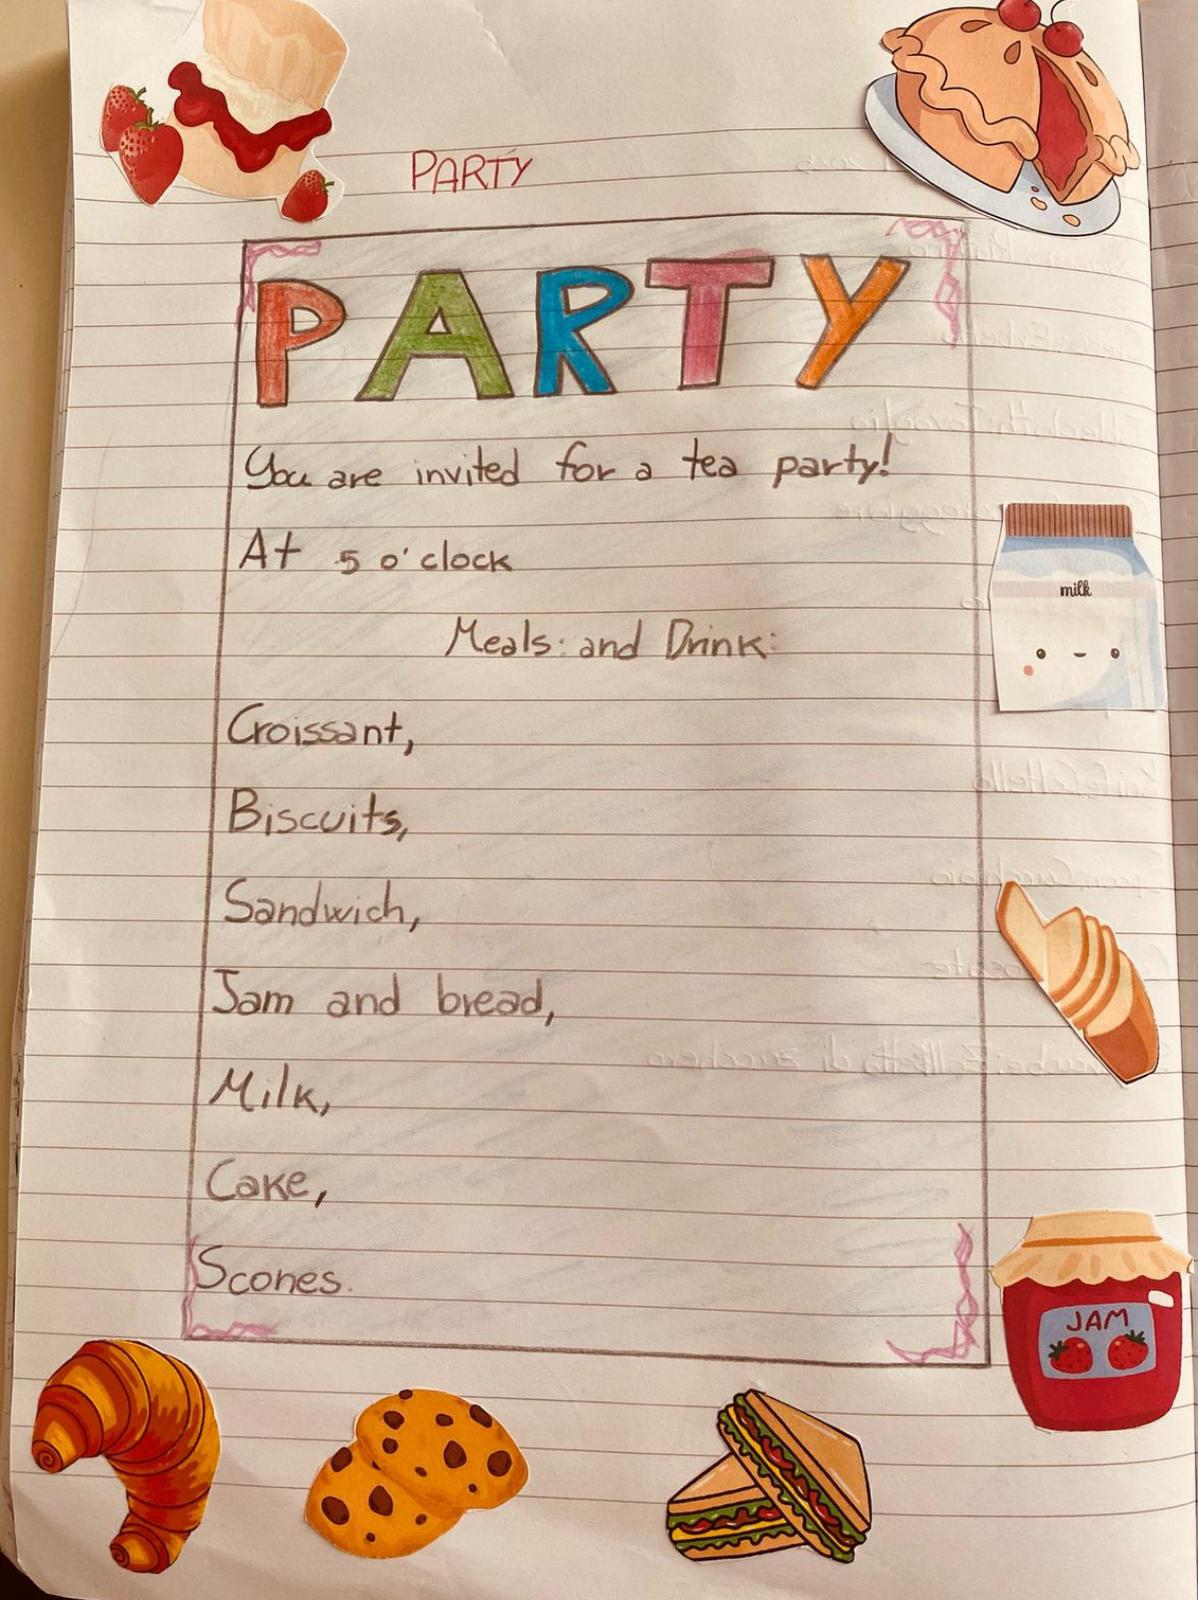 PARTY
PARTY
You are invited for a tea party!
At 5 o'clock
Meals: and Drink:
Croissant,
Biscuits,
Sandwich,
Jam and bread,
Milk,
Cake,
Scones.
milk
JAM